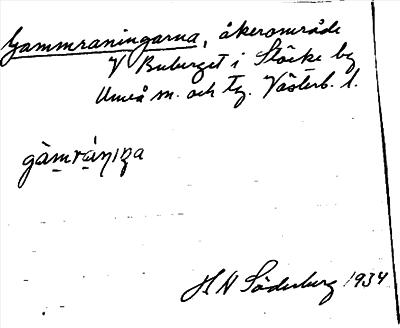 Gammraningarna, åkerområde
V Buberget i Stöcke by
Umeå m. och tg. Västerb. l.
gàmráṇiŋa
H N Söderberg 1934